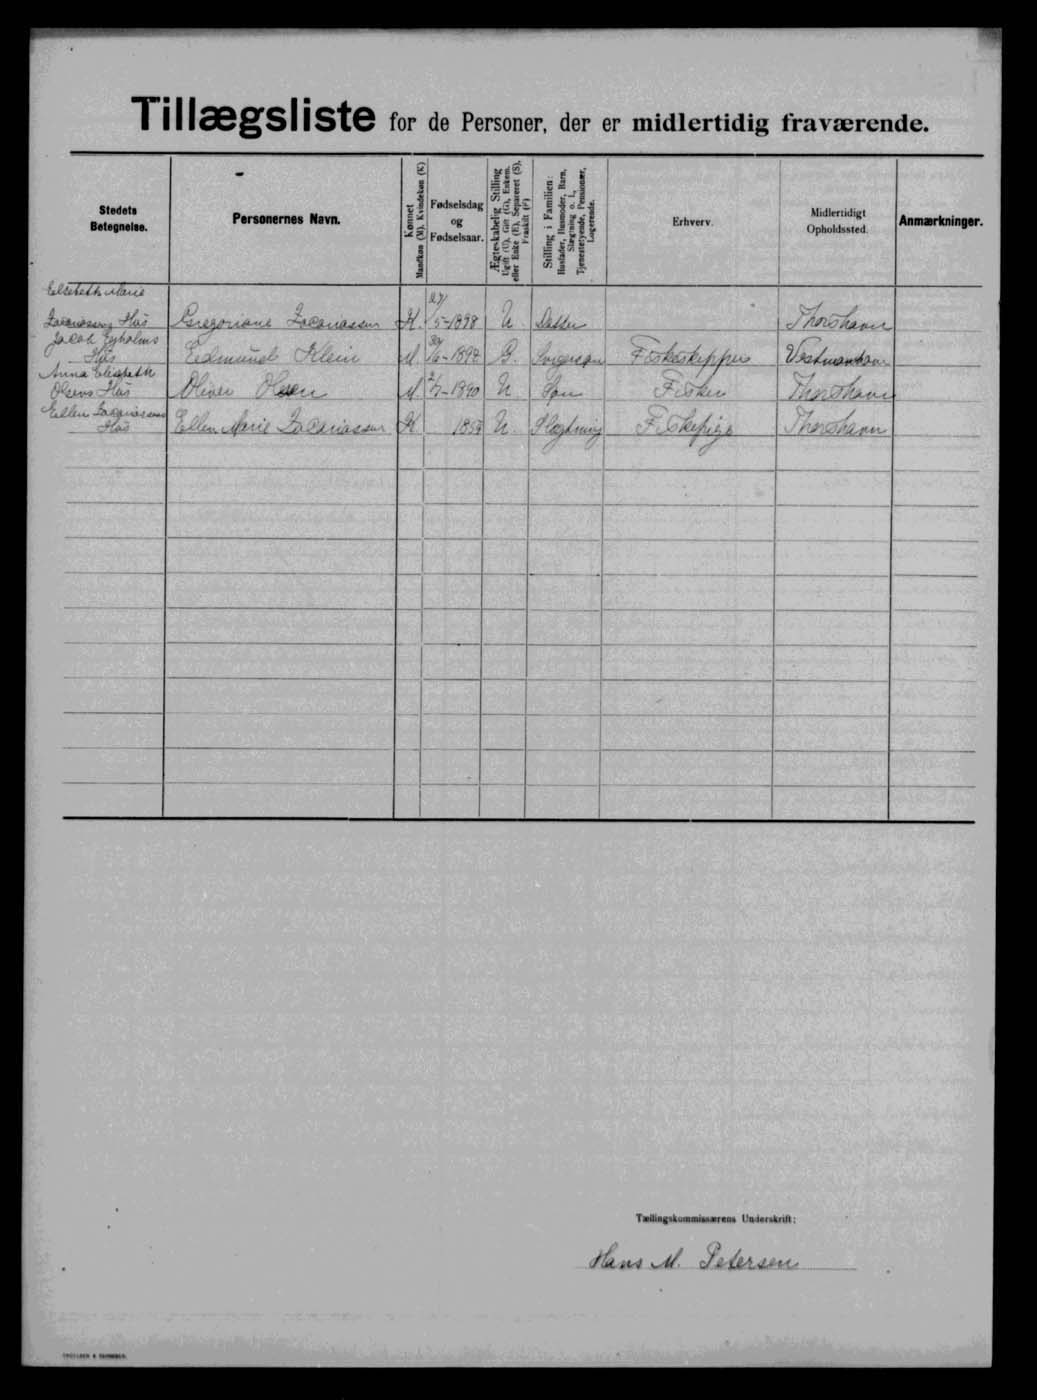 Tillægsliste for de Personer, der er midlertidig fraværende.
Stedets Betegnelse.
Personernes Navn.
Kønnet
Mandkøn (M). Kvindekøn (K)
Fødselsdag og Fødselsaar.
Ægteskabelig Stilling
Ugift (U), Gift (G), Enkem. eller Enke (E), Separeret (S), Fraskilt (F)
Stilling i Familien:
Husfader, Husmoder, Barn, Slægtning o. l., Tjenestetyende, Pensionær, Logerende.
Erhverv.
Midlertidigt Opholdssted.
Anmærkninger.
Elsebeth Marie
Zacariassens Hus Gregoriane Zacariassen K. /5-1898 U. Datter Thorshavn
Jacob Eyholms
Hus Edmund Klein M /6-1892 G. Svigersøn Fiskeskipper Vestmanhavn
Anna Elisabeth
Olsens Hus Oliver Olsen M. 2/7-1890 U. Søn Fisker Thorshavn
Ellen Zacariassens
Hus Ellen Marie Zacariassen K 1857 U. Slægtning Fiskepige Thorshavn
Tællingskommissærens Underskrift:
Hans M. Petersen